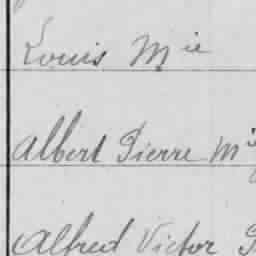 Louis Mie
Albert Pierre M
Alfred Victor